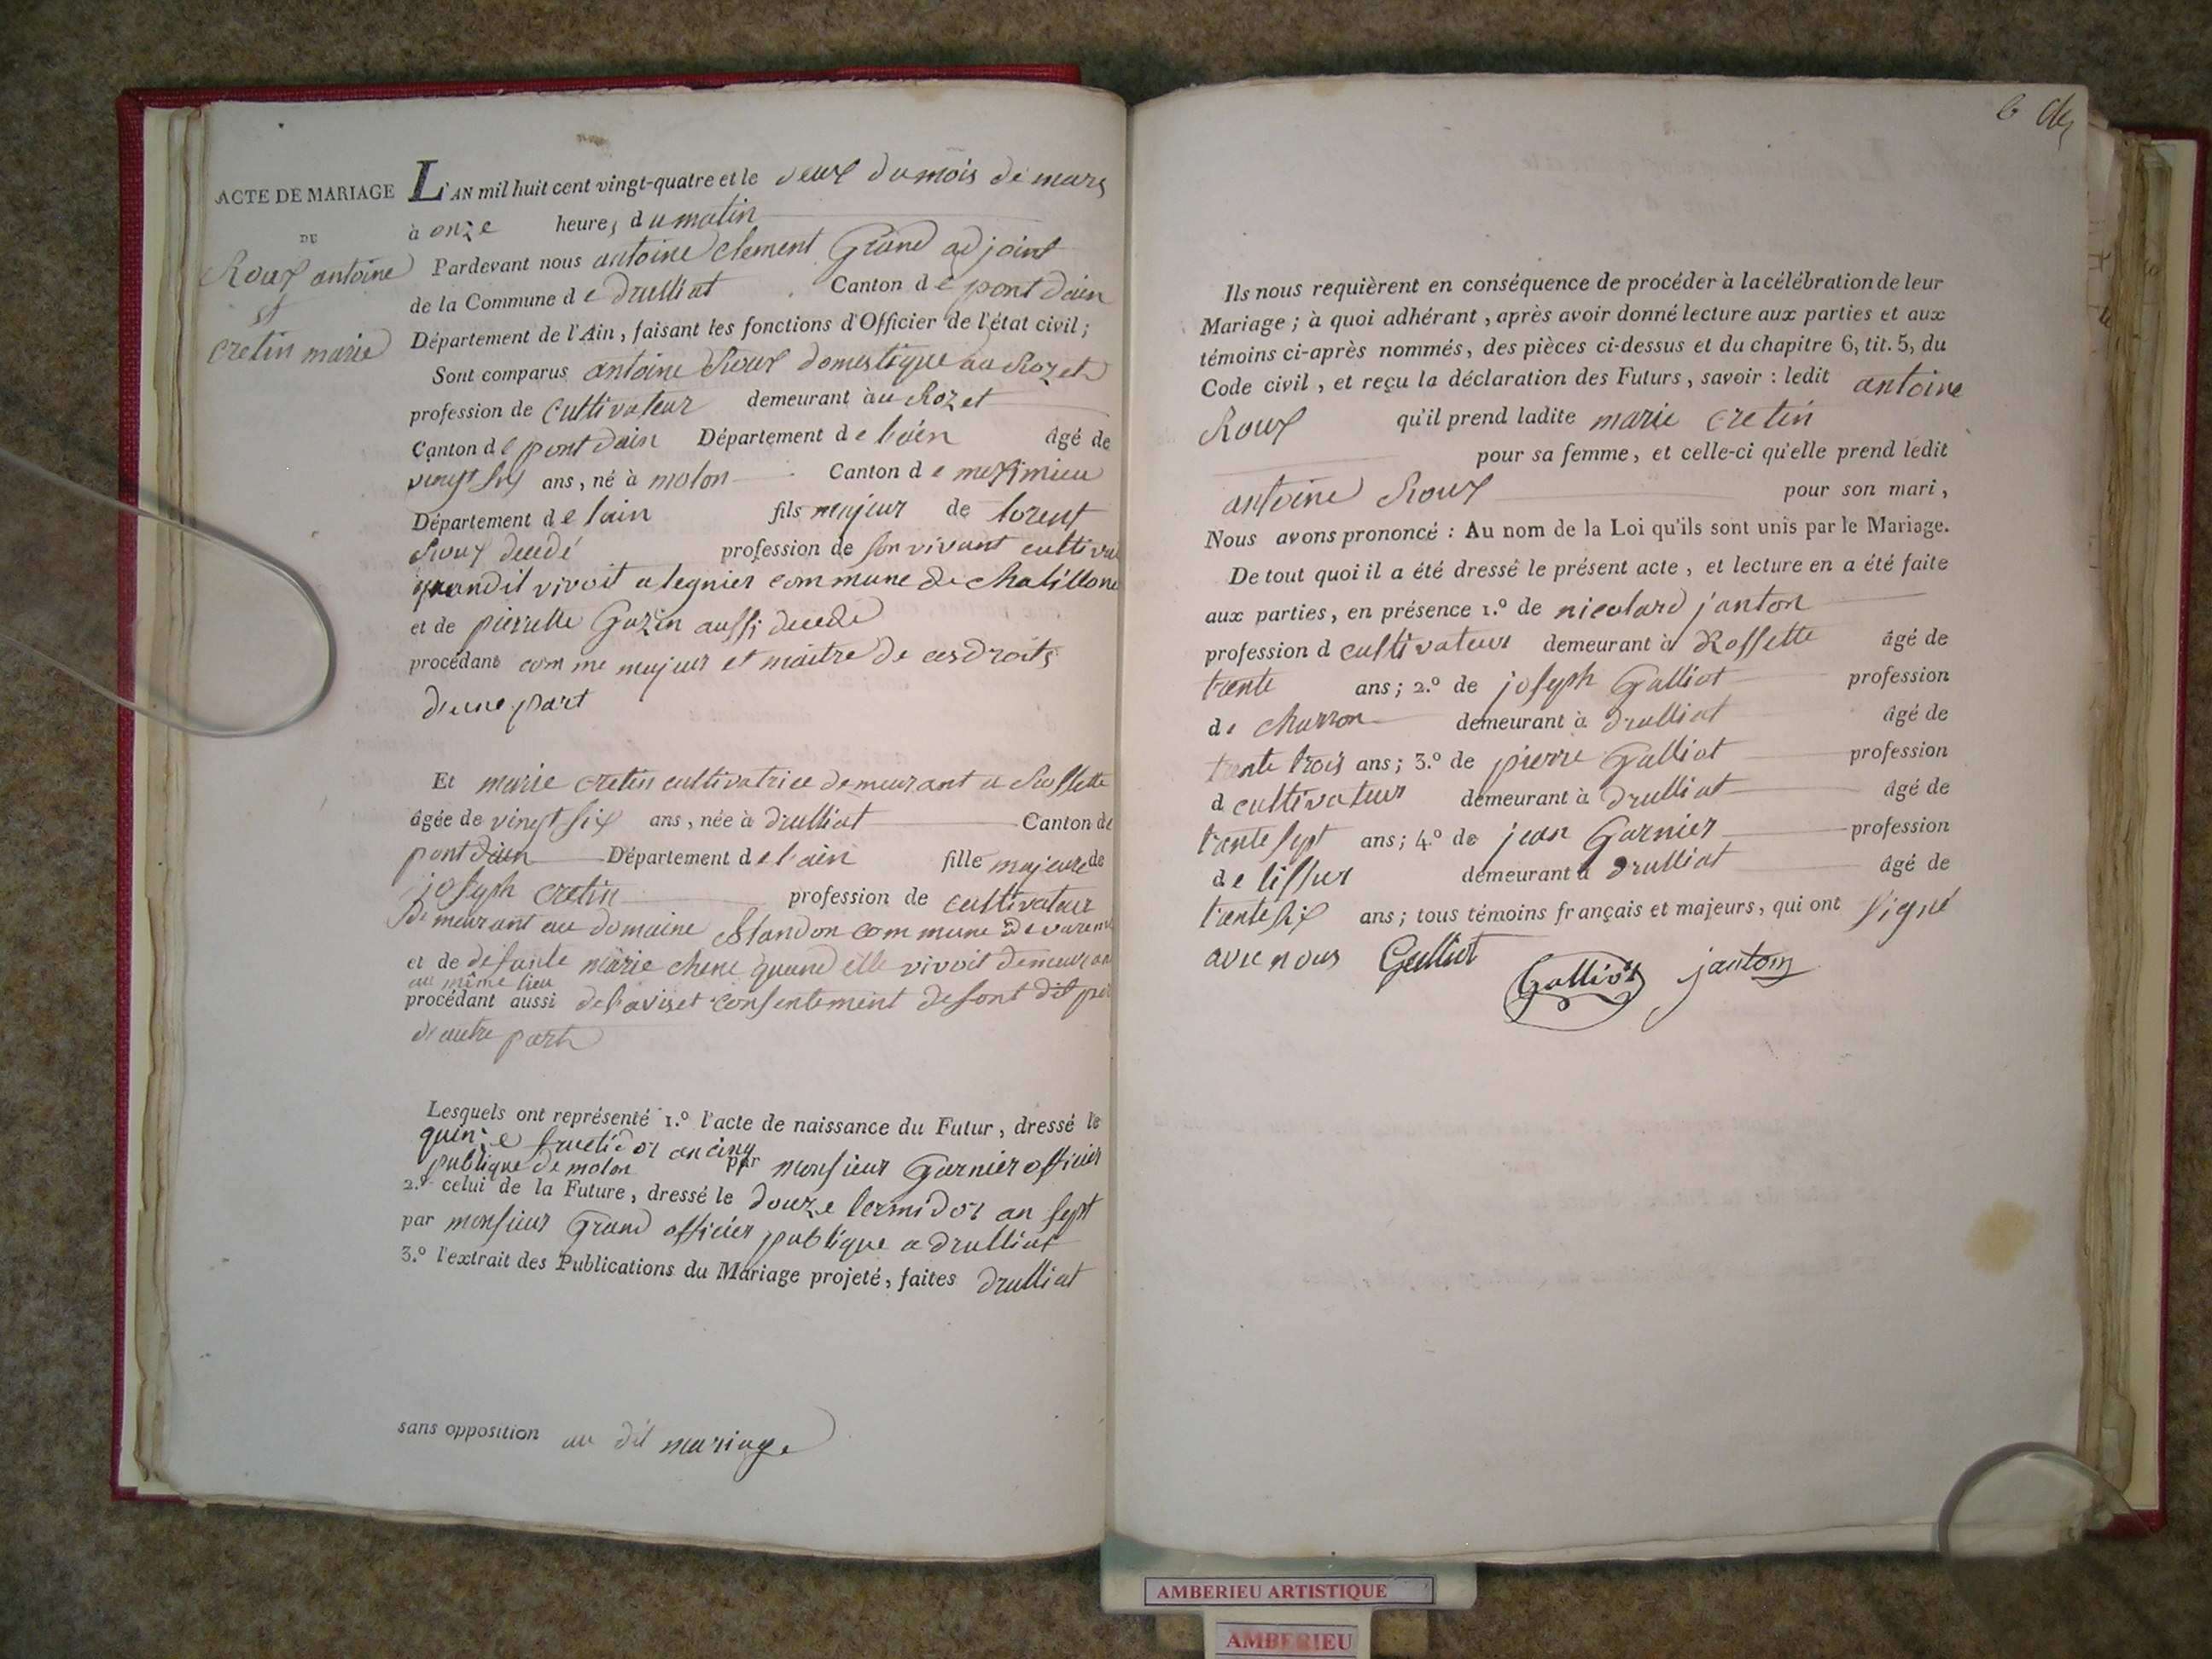 ACTE DE MARIAGE
DE
Roux antoine
et
cretin marie
L'AN mil huit cent vingt-quatre et le deux du mois de mars
à onze heures du matin
Pardevant nous antoine clement Grand adjoint
de la Commune de drulliat Canton de pont dain
Département de l'Ain, faisant les fonctions d'Officier de l'état civil;
Sont comparus antoine Roux domestique au Rozet
profession de cultivateur demeurant au Rozet
Canton de pont dain Département de lain âgé de
vingt six ans, né à molon Canton de meximieu
Département de lain fils majeur de lorent
Roux decedé profession de son vivant cultiva
quandil vivoit a legnier commune de chatillone
et de pierrette Gozin aussi decede
procédant comme majeur et maitre de ces droits
dune part
Et marie cretin cultivatrice demeurant a Rossette
âgée de vingt six ans, née à drulliat Canton de
pont dain Département de lain fille majeure de
joseph cretin profession de cultivateur
demeurant au domaine commune de varem
et de defunte marie chene quand elle vivoit demeuran
au même lieu
procédant aussi de lavis et consentement de sont dit per
dautre part
Lesquels ont représenté 1.º l'acte de naissance du Futur, dressé le
quinze fructidor an cinq
publique de molon par monsieur Garnier officier
2.º celui de la Future, dressé le douze termidor an sept
par monsieur Grand officier publique a drulliat
3.º l'extrait des Publications du Mariage projeté, faites drulliat
sans opposition au dit mariage
6
Ils nous requièrent en conséquence de procéder à la célébration de leur
Mariage; à quoi adhérant, après avoir donné lecture aux parties et aux
témoins ci-après nommés, des pièces ci-dessus et du chapitre 6, tit. 5, du
Code civil, et reçu la déclaration des Futurs, savoir: ledit antoine
Roux qu'il prend ladite marie cretin
pour sa femme, et celle-ci qu'elle prend ledit
antoine Roux pour son mari,
Nous avons prononcé: Au nom de la Loi qu'ils sont unis par le Mariage.
De tout quoi il a été dressé le présent acte, et lecture en a été faite
aux parties, en présence 1.º de nicolard janton
profession d cultivateur demeurant à Rossette âgé de
trente ans; 2.º de joseph Galliot profession
de charron demeurant à drulliat âgé de
trente trois ans; 3.º de pierre Galliot profession
d cultivateur demeurant à drulliat âgé de
trente sept ans; 4.º de jean Garnier profession
de tissur demeurant à drulliat âgé de
trente six ans; tous témoins français et majeurs, qui ont signé
avec nous Galliot
Galliot janton
AMBERIEU ARTISTIQUE
AMBERIEU